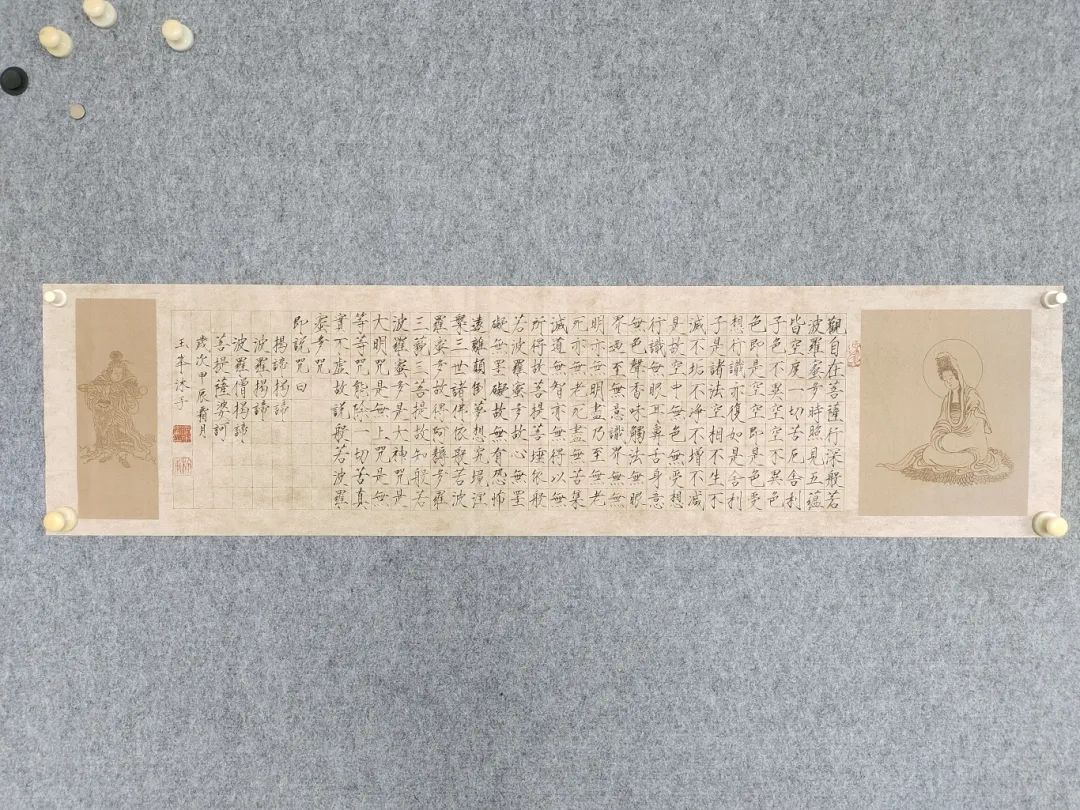 觀自在菩薩行深般若
波羅蜜多時照見五蘊
皆空度一切苦厄舍利
子色不異空空不異色
色即是空空即是色受
想行識亦復如是舍利
子是諸法空相不生不
滅不垢不淨不增不減
是故空中無色無受想
行識無眼耳鼻舌身意
無色聲香味觸法無眼
界無至無意識界無無
明亦無無明盡乃至無老
死亦無老死盡無苦集
滅道無智亦無得以無
所得故菩提薩埵依般
若波羅蜜多故心無罣
礙無罣礙故無有恐怖
遠離顛倒夢想究竟涅
槃三世諸佛依般若波
羅蜜多故得阿耨多羅
三藐三菩提故知般若
波羅蜜多是大神咒是
大明咒是無上咒是無
等等咒能除一切苦真
實不虛故說般若波羅
蜜多咒
即說咒曰
揭諦揭諦
波羅揭諦
波羅僧揭諦
菩提薩婆訶
歲次甲辰霜月
玉峯沐手